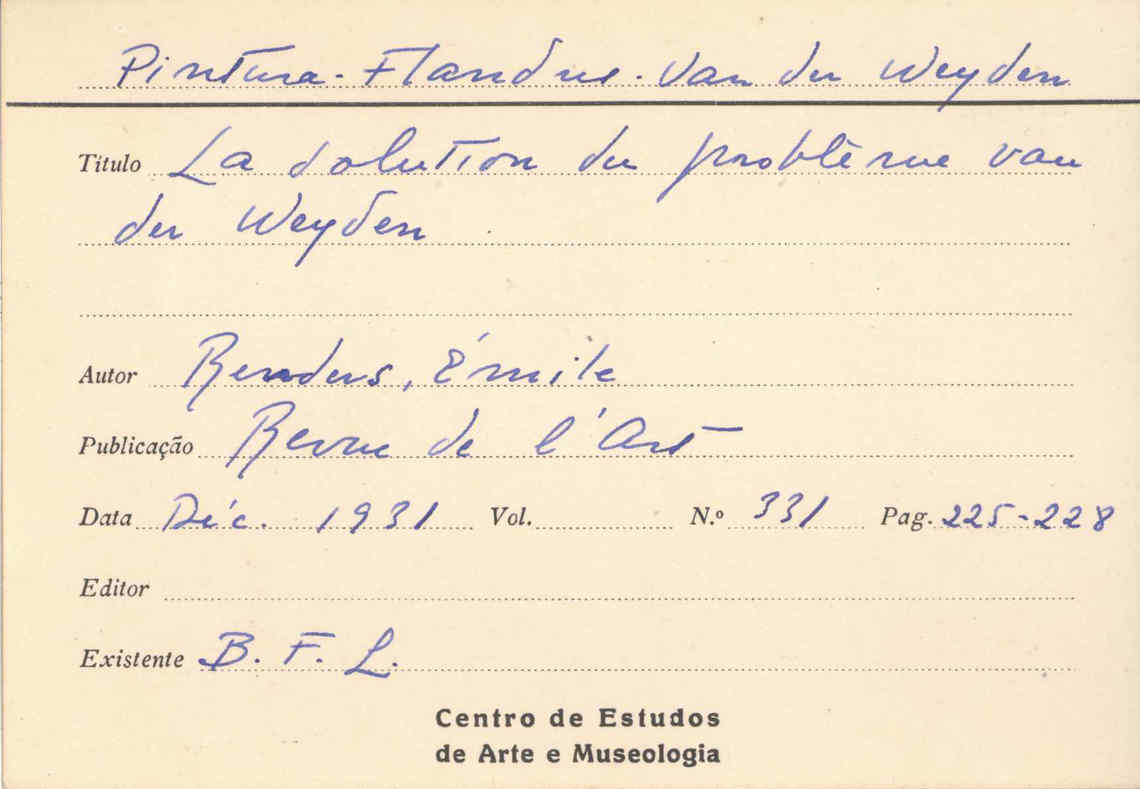 Pintura - Flandres - Van der Weyden
Título La solution du problème van
der Weyden
Autor Renders, Émile
Publicação Revue de l'Art
Data Déc. 1931 Vol. N.º 331 Pag. 225-228
Editor
Existente B. F. L.
Centro de Estudos
de Arte e Museologia